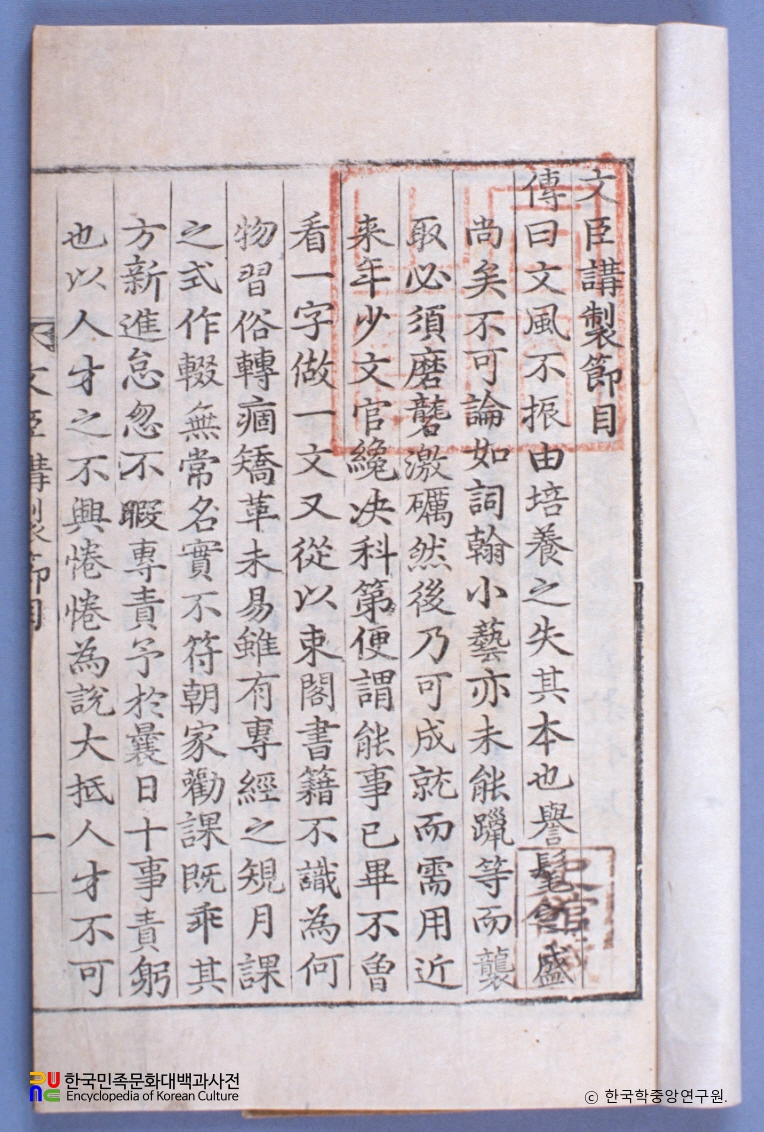 文臣講製節目
傳曰文風不振由培養之失其本也譽髦盛
尚矣不可論如詞翰小藝亦未能躐等而襲
取必須磨礱激礪然後乃可成就而需用近
来年少文官纔决科第便謂能事已畢不曾
看一字做一文又從以束閣書籍不識為何
物習俗轉痼矯革未易雖有專經之規月課
之式作輟無常名實不符朝家勸課既乖其
方新進怠忽不暇專責予於曩日十事責躬
也以人才之不興惓惓為說大抵人才不可
文臣講製節目
一
한국민족문화대백과사전
Encyclopedia of Korean Culture
ⓒ 한국학중앙연구원.